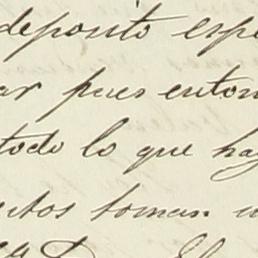 deposito espe
ar pues enton
todo lo que hay
ntos toman u